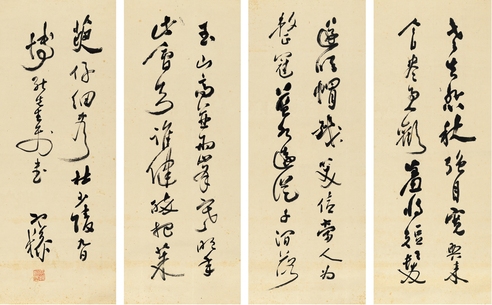 老去悲秋強自寬興來
今日盡君歡羞將短髮
還吹帽笑倩旁人為
整冠藍水遠從千澗落
玉山高並兩峰寒明年
此會知誰健醉把茱
萸仔細看杜少陵
先生